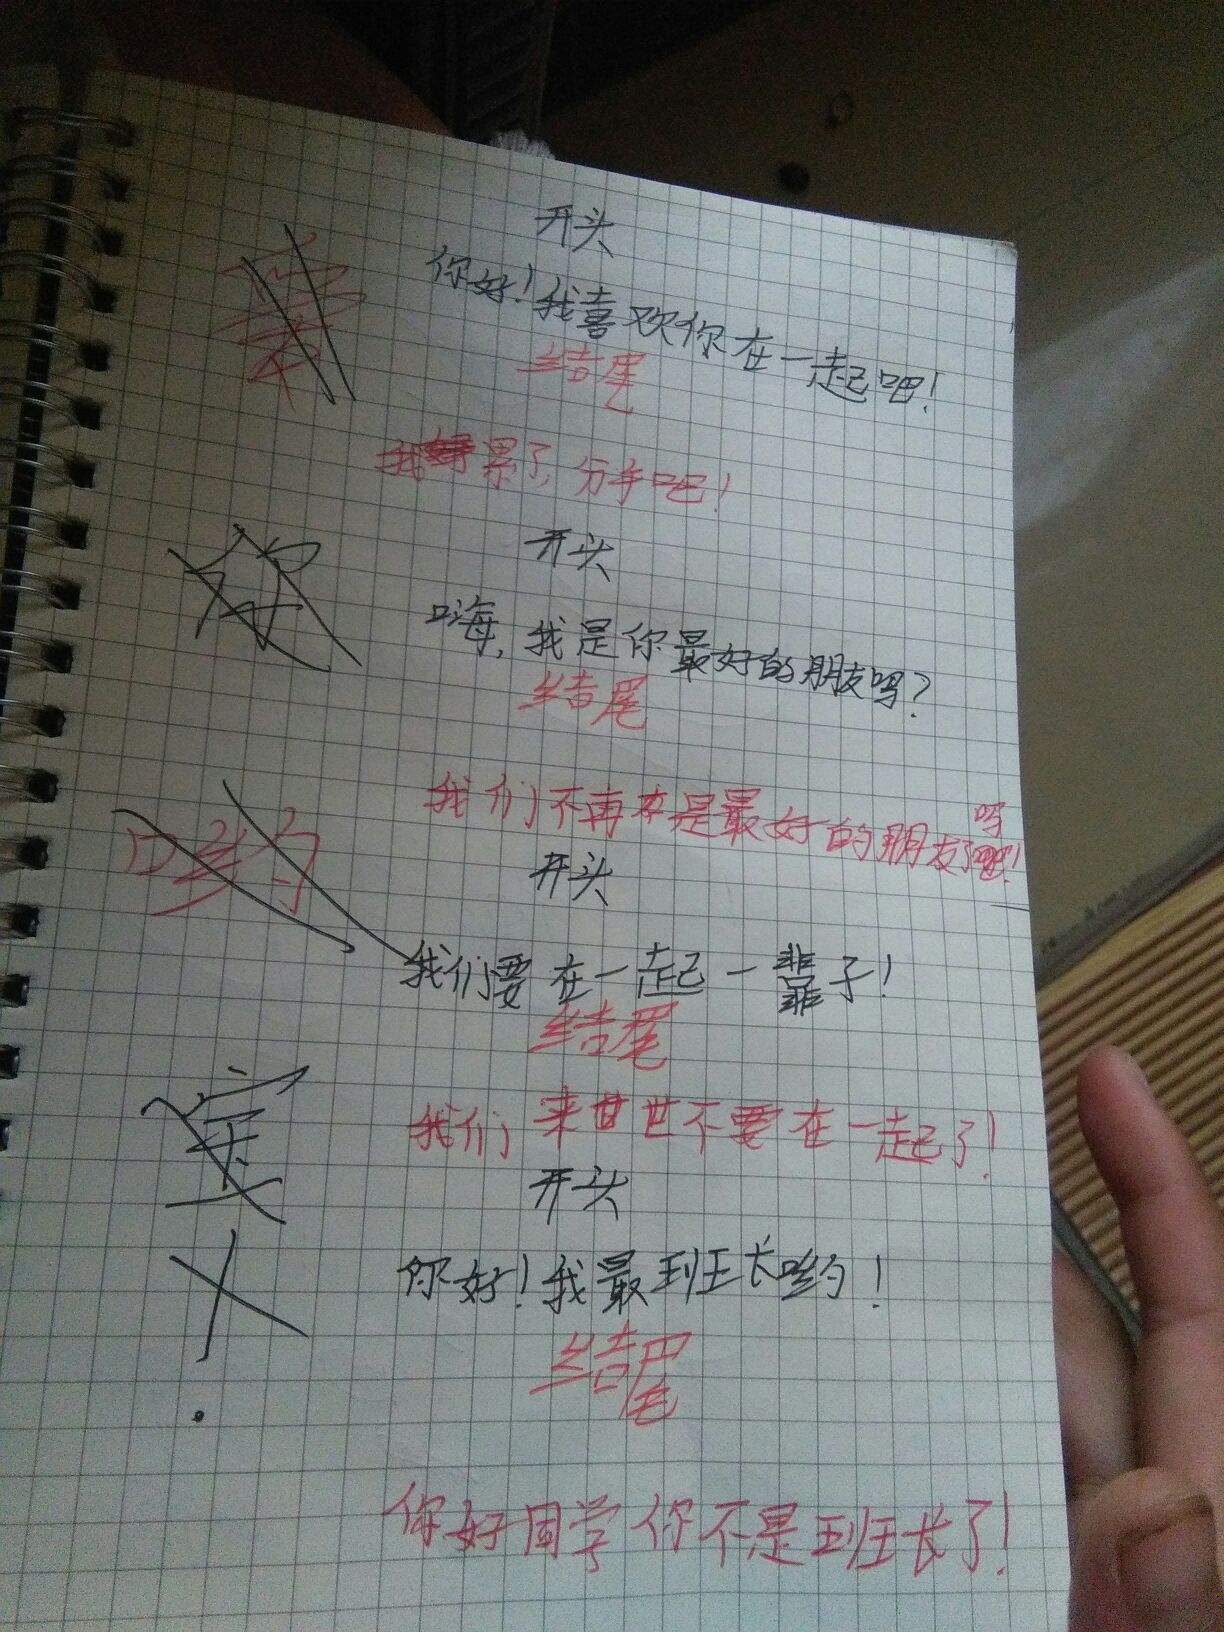 开头
你好！我喜欢你在一起吧！
结尾
我累了，分手吧！
开头
嗨，我是你最好的朋友吗？
结尾
我们不再是最好的朋友了吗！
开头
我们要在一起一辈子！
结尾
我们来世世不要在一起了！
开头
你好！我最班长哟！
结尾
你好同学你不是班长了！